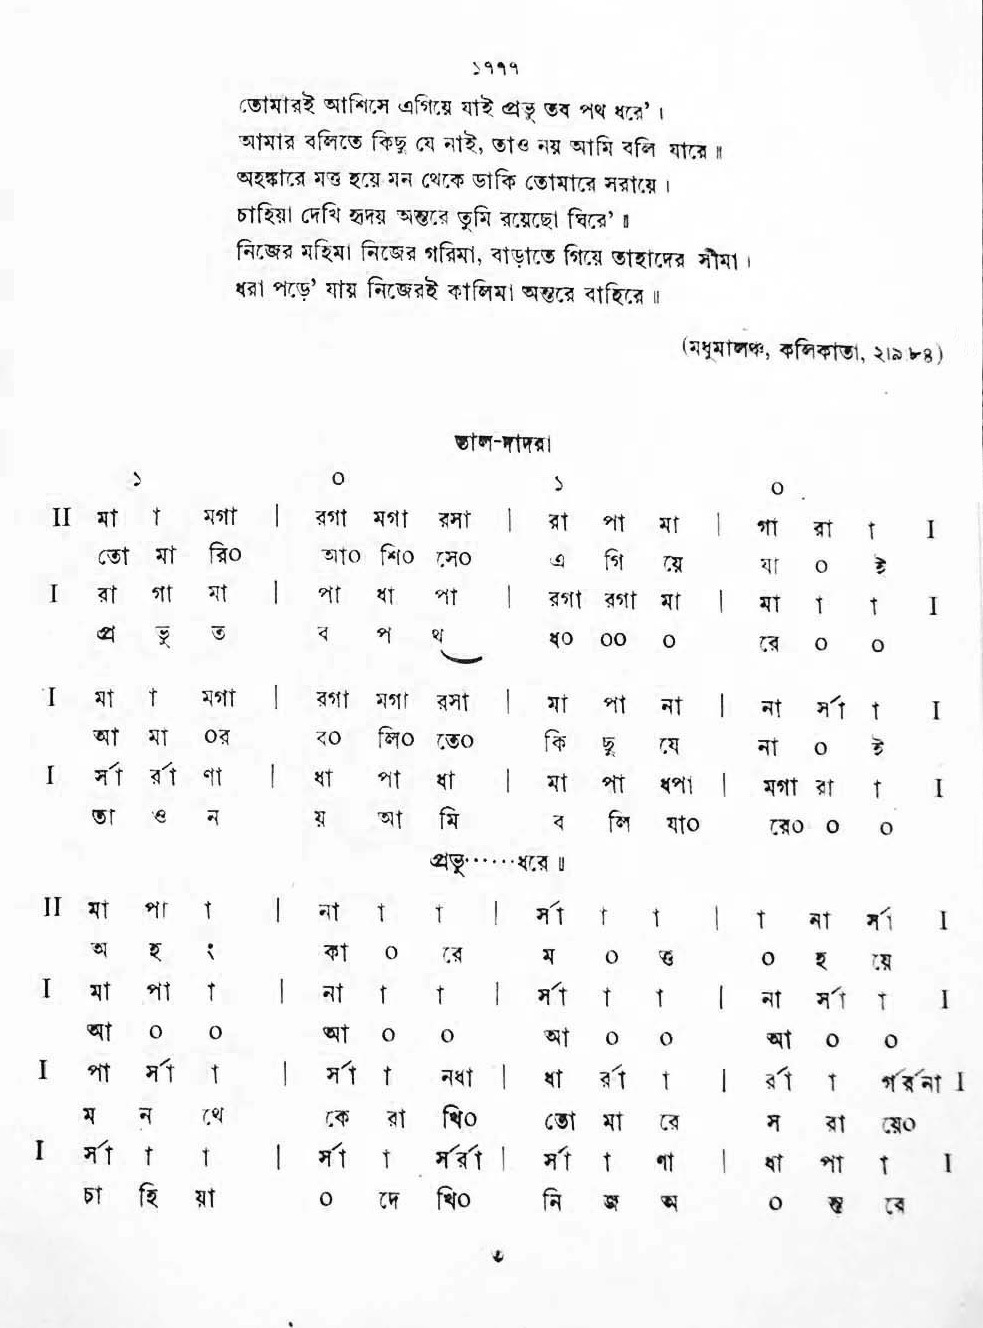 ১৭৭৭
তোমারই আশিসে এগিয়ে যাই প্রভু তব পথ ধরে’ ।
আমার বলিতে কিছু যে নাই, তাও নয় আমি বলি যারে ॥
অহঙ্কারে মত্ত হয়ে মন থেকে ডাকি তোমারে সরায়ে ।
চাহিয়া দেখি হৃদয় অন্তরে তুমি রয়েছো ঘিরে’ ॥
নিজের মহিমা নিজের গরিমা, বাড়াতে গিয়ে তাহাদের সীমা ।
ধরা পড়ে’ যায় নিজেরই কালিমা অন্তরে বাহিরে ॥
(মধুমালঞ্চ, কলিকাতা, ২৷৯৷৮৪)
তাল-দাদরা
১ ০ ১ ০
II মা া মগা | রগা মগা রসা | রা পা মা | গা রা া I
তো মা রি০ আ০ শি০ সে০ এ গি য়ে যা ০ ই
I রা গা মা | পা ধা পা | রগা রগা মা | মা া া I
প্র ভু ত ব প থ ধ০ ০০ ০ রে ০ ০
I মা া মগা | রগা মগা রসা | মা পা না | না র্সা া I
আ মা ০র ব০ লি০ তে০ কি ছু যে না ০ ই
I র্সা র্রা ণা | ধা পা ধা | মা পা ধপা | মগা রা া I
তা ও ন য় আ মি ব লি যা০ রে০ ০ ০
প্রভু······ধরে ॥
II মা পা া | না া া | র্সা া া | া না র্সা I
অ হ ং কা ০ রে ম ০ ত্ত ০ হ য়ে
I মা পা া | না া া | র্সা া া | না র্সা া I
আ ০ ০ আ ০ ০ আ ০ ০ আ ০ ০
I পা র্সা া | র্সা া নধা | ধা র্রা া | র্রা া র্গর্রনা I
ম ন থে কে রা খি০ তো মা রে স রা য়ে০
I র্সা া া | র্সা া র্সর্রা | র্সা া ণা | ধা পা া I
চা হি য়া ০ দে খি০ নি জ অ ০ ন্ত রে
৬